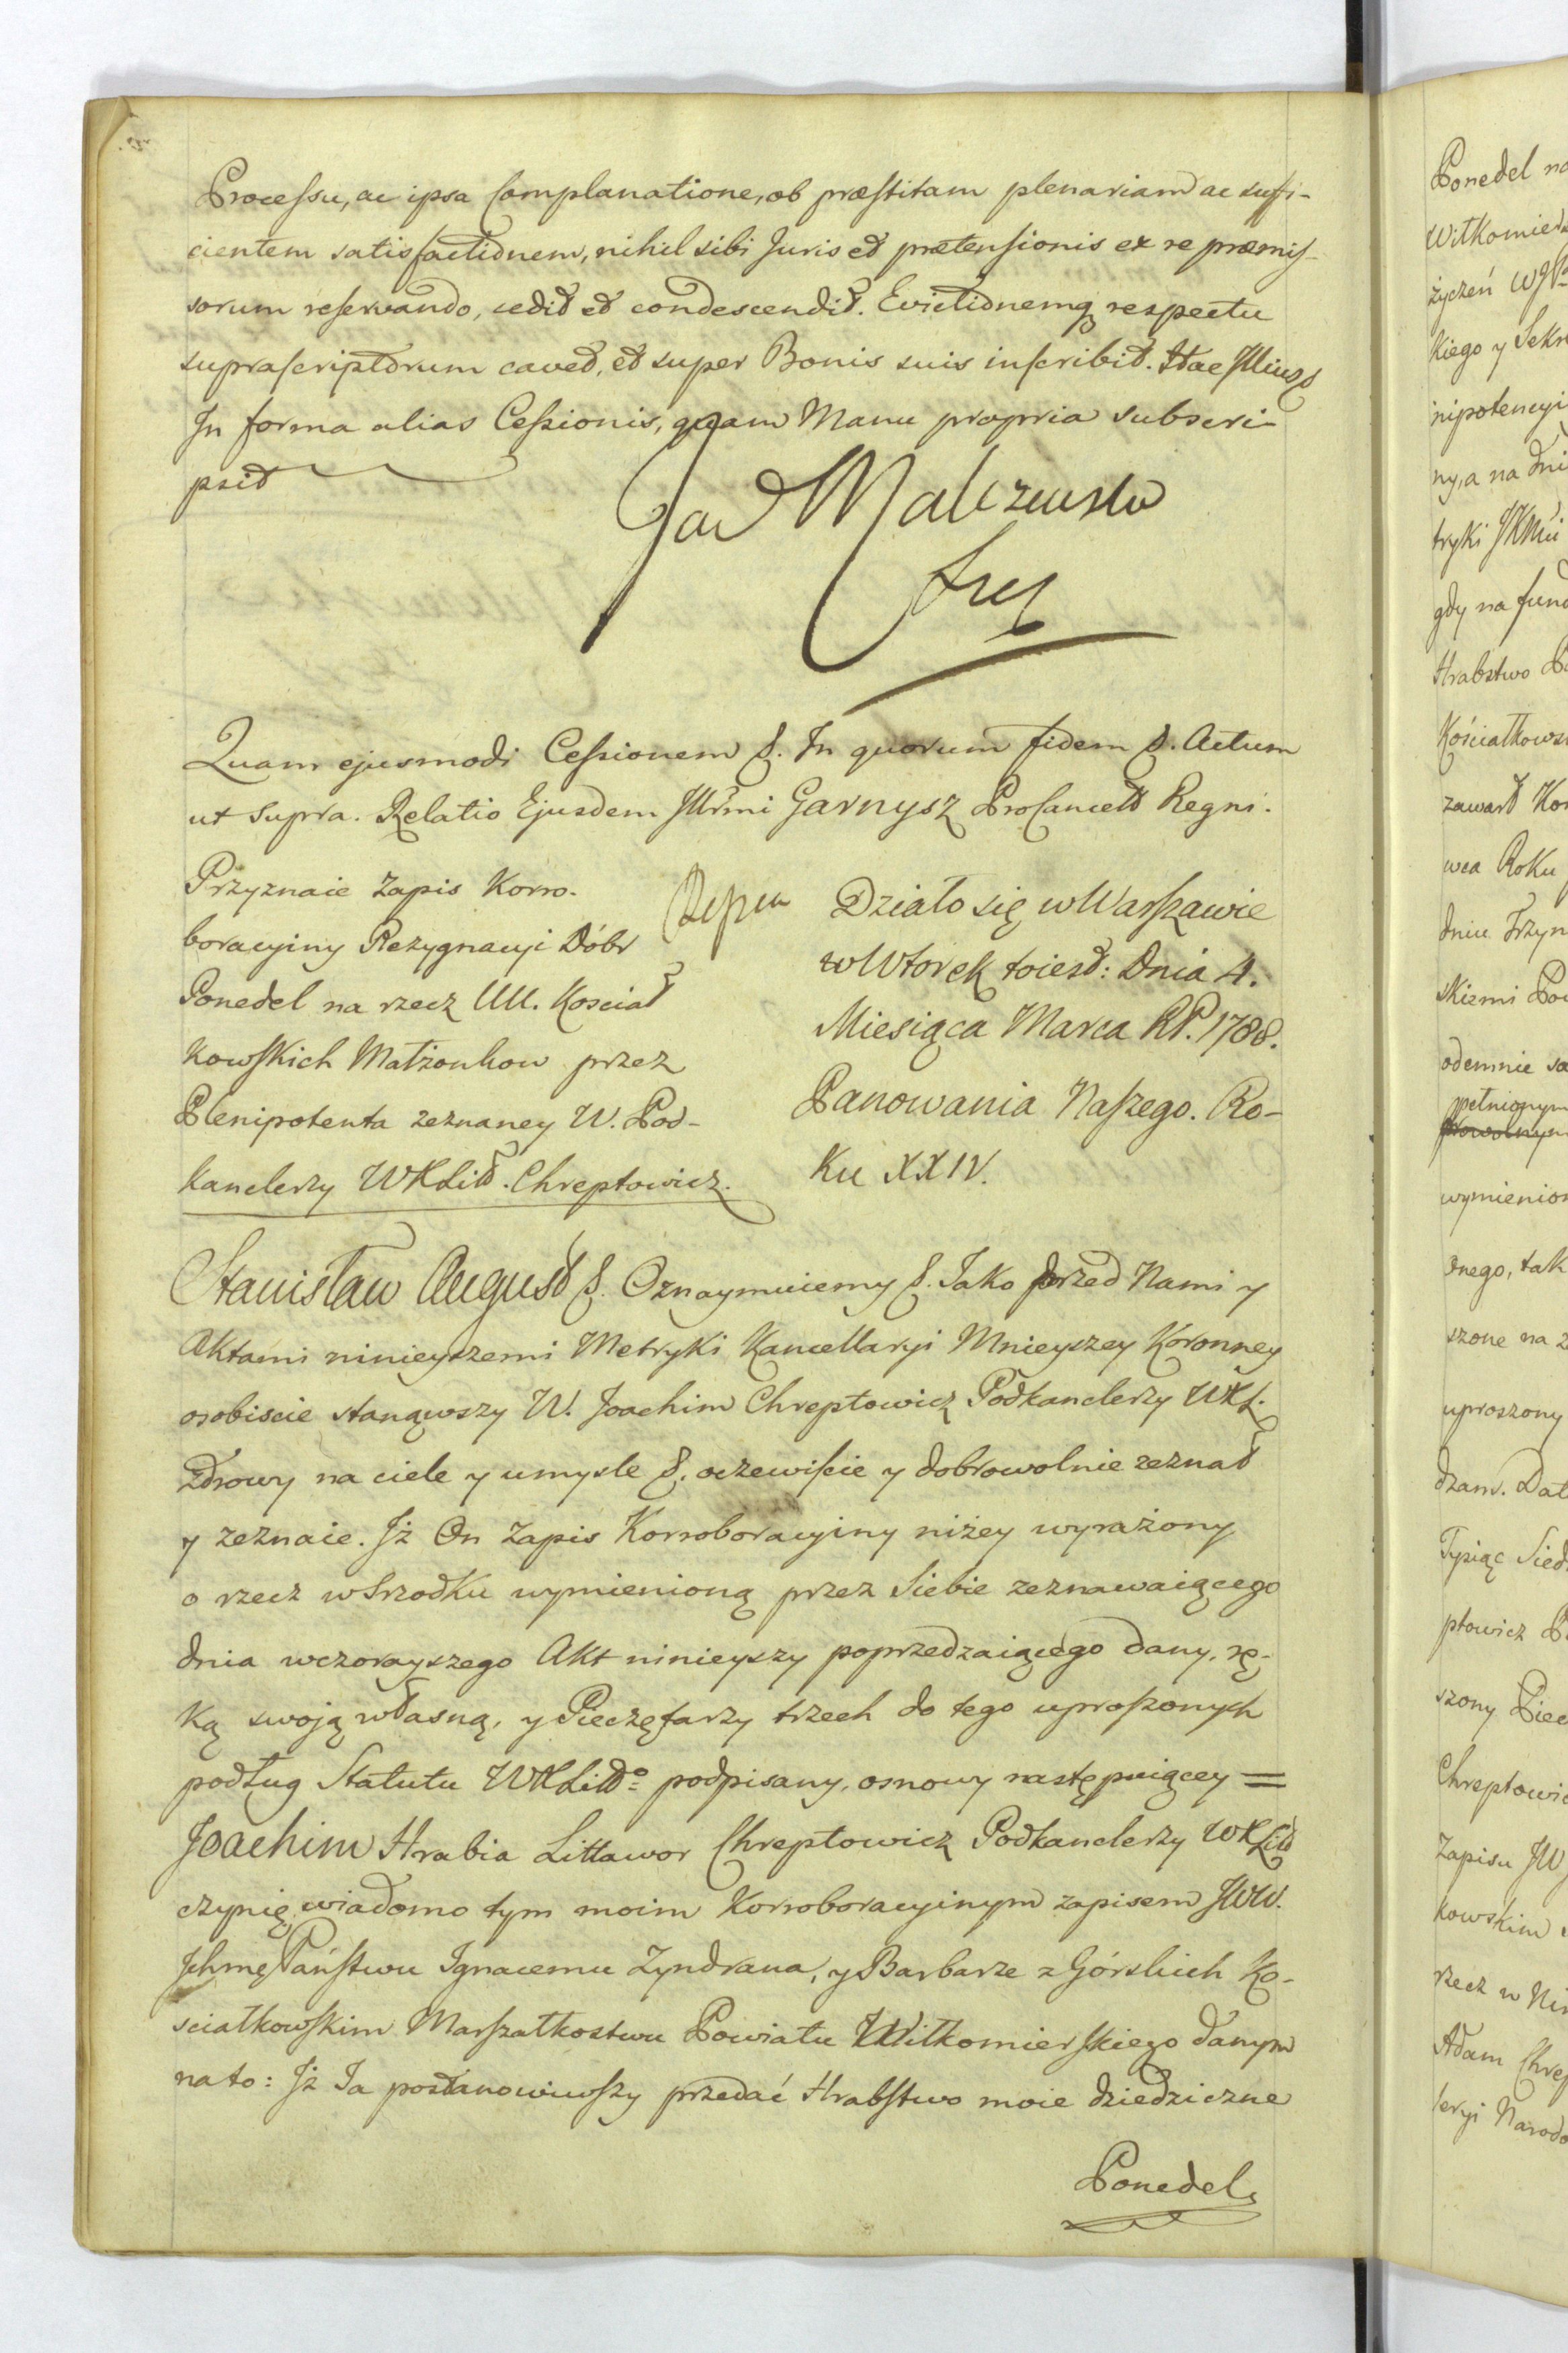 Processu, ac ipsa Complanatione, ob præstitam plenariam ac suffi-
cientem satisfactionem, nihil sibi Juris et prætensionis ex re præmis-
sorum reservando, cedit et condescendit. Evictionemq respectu
suprascriptorum cavet, et super Bonis suis inscribit. Hac
In forma alias Cessionis, quam Manu propria subscri-
psit
Malczewski
Quam ejusmodi Cessionem &. In quorum fidem &. Actum
ut supra. Relatio Ejusdem Illrmi Garnysz ProCancell Regni.
Przyznaie Zapis Korro-
boracyiny Rezygnacyi Dóbr
Ponedel na rzecz UU. Kosciał
kowskich Małżonkow przez
Plenipotenta zeznaney W. Pod-
kanclerzy WXLitt. Chreptowicz.
Działo się w Warszawie
w Wtorek toiest: Dnia 4.
Miesiąca Marca RP. 1788.
Panowania Naszego. Ro-
ku XXIV.
Stanisław August &. Oznaymuiemy &. Jako przed Nami y
Aktami ninieyszemi Metryki Kancellaryi Mnieyszey Koronney
osobiscie stanąwszy W. Joachim Chreptowicz Podkanclerzy WXL.
Zdrowy na ciele y umysle &. oczewiście y dobrowolnie zeznał
y zeznaie. Jż On Zapis Korroboracyiny niżey wyrażony
o rzecz w srzodku wymienioną przez Siebie zeznawaiącego
dnia wczorayszego Akt ninieyszy poprzedzaiącego dany, rę-
ką swoją własną, y Pieczętarzy trzech do tego uproszonych
podług Statutu WXLittº podpisany, osnowy następuiącey =
Joachim Hrabia Littawor Chreptowicz Podkanclerzy WXLitt
czynię wiadomo tym moim Korroboracyinym zapisem JWW.
Jchmę Państwu Jgnacemu Zyndrana, y Barbarze z Górskich Ko-
sciałkowskim Marszałkostwu Powiatu Wiłkomierskiego danym
na to: Jż Ja postanowiwszy przedać Hrabstwo moie dziedziczne
Ponedel
Ponedel na
Wiłkomiers
życzeń
kiego y Sekr
nipotencyi
ny, a na dni
tryki JKMci
gdy na fund
Hrabstwo
Kościałkows
zawarł Kon
wca Roku
dniu Trzyn
skiemi
odemnie
pełnionym
wymienion
onego, tak
szone na
uproszony
dzam. Dat
Tysiąc Sied
ptowicz
szony Piec
Chreptowic
Zapisu JW
kowskim
rzecz w Nin
Adam Chrep
leryi Narodo